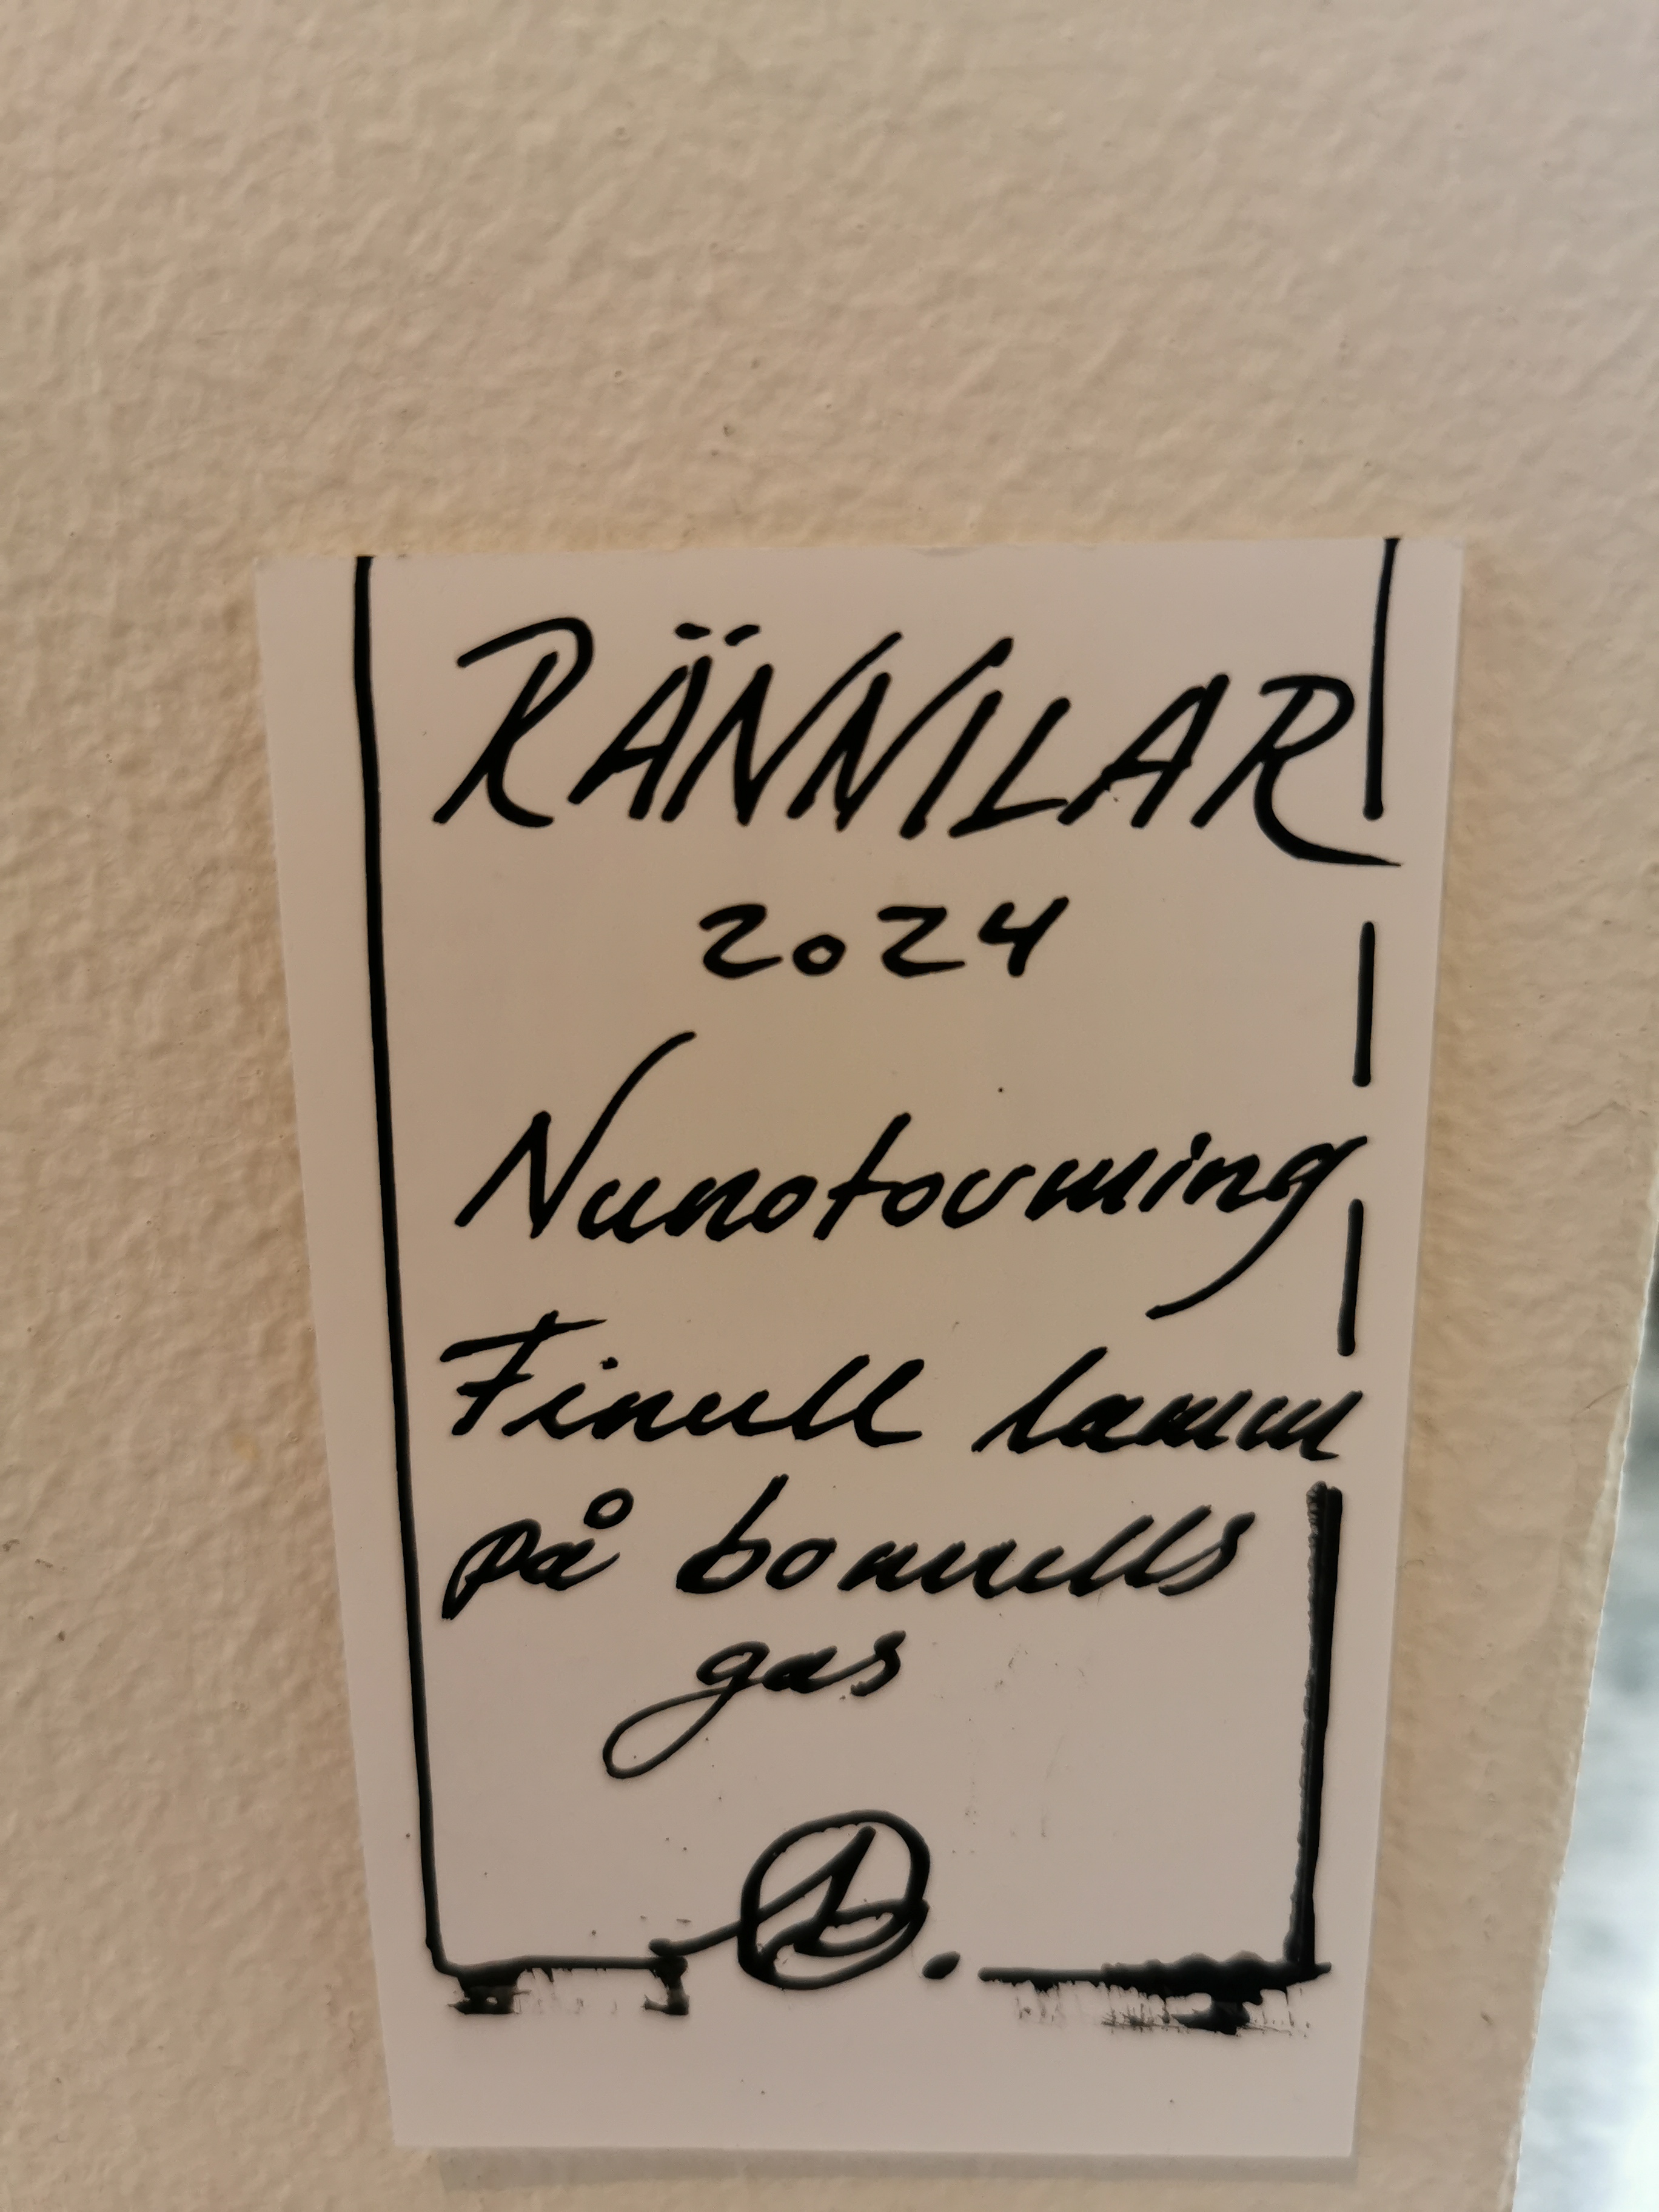 RÄNNILAR
2024
Nunotovning
Finull lamm
på bomulls
gas